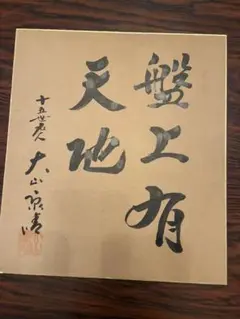 盤上有
天地
十五世名人
大山康晴